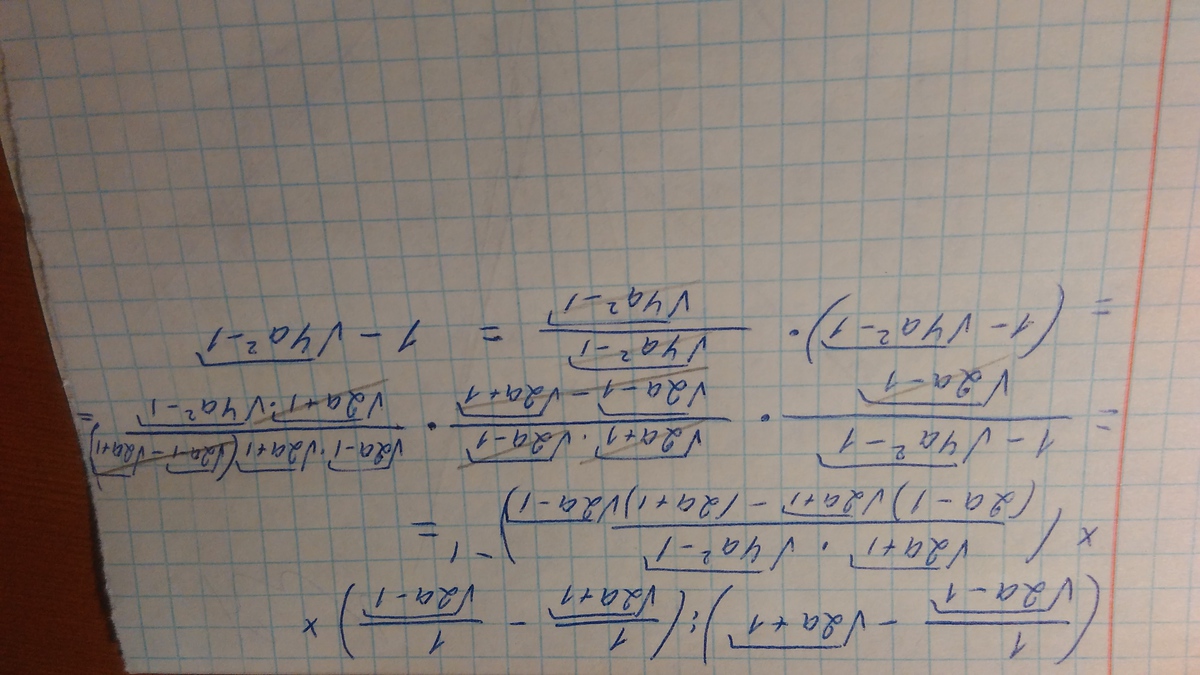 (1/√(2a-1) - √(2a+1)) : (1/√(2a+1) - 1/√(2a-1)) ×
× (√(2a+1) · √(4a²-1) / ((2a-1)√(2a+1) - (2a+1)√(2a-1)))⁻¹ =
= (1-√(4a²-1))/√(2a-1) · (√(2a+1) · √(2a-1))/(√(2a-1) - √(2a+1)) · (√(2a-1) · √(2a+1)(√(2a-1) - √(2a+1)))/(√(2a+1) · √(4a²-1)) =
= (1-√(4a²-1)) · √(4a²-1)/√(4a²-1) = 1-√(4a²-1)